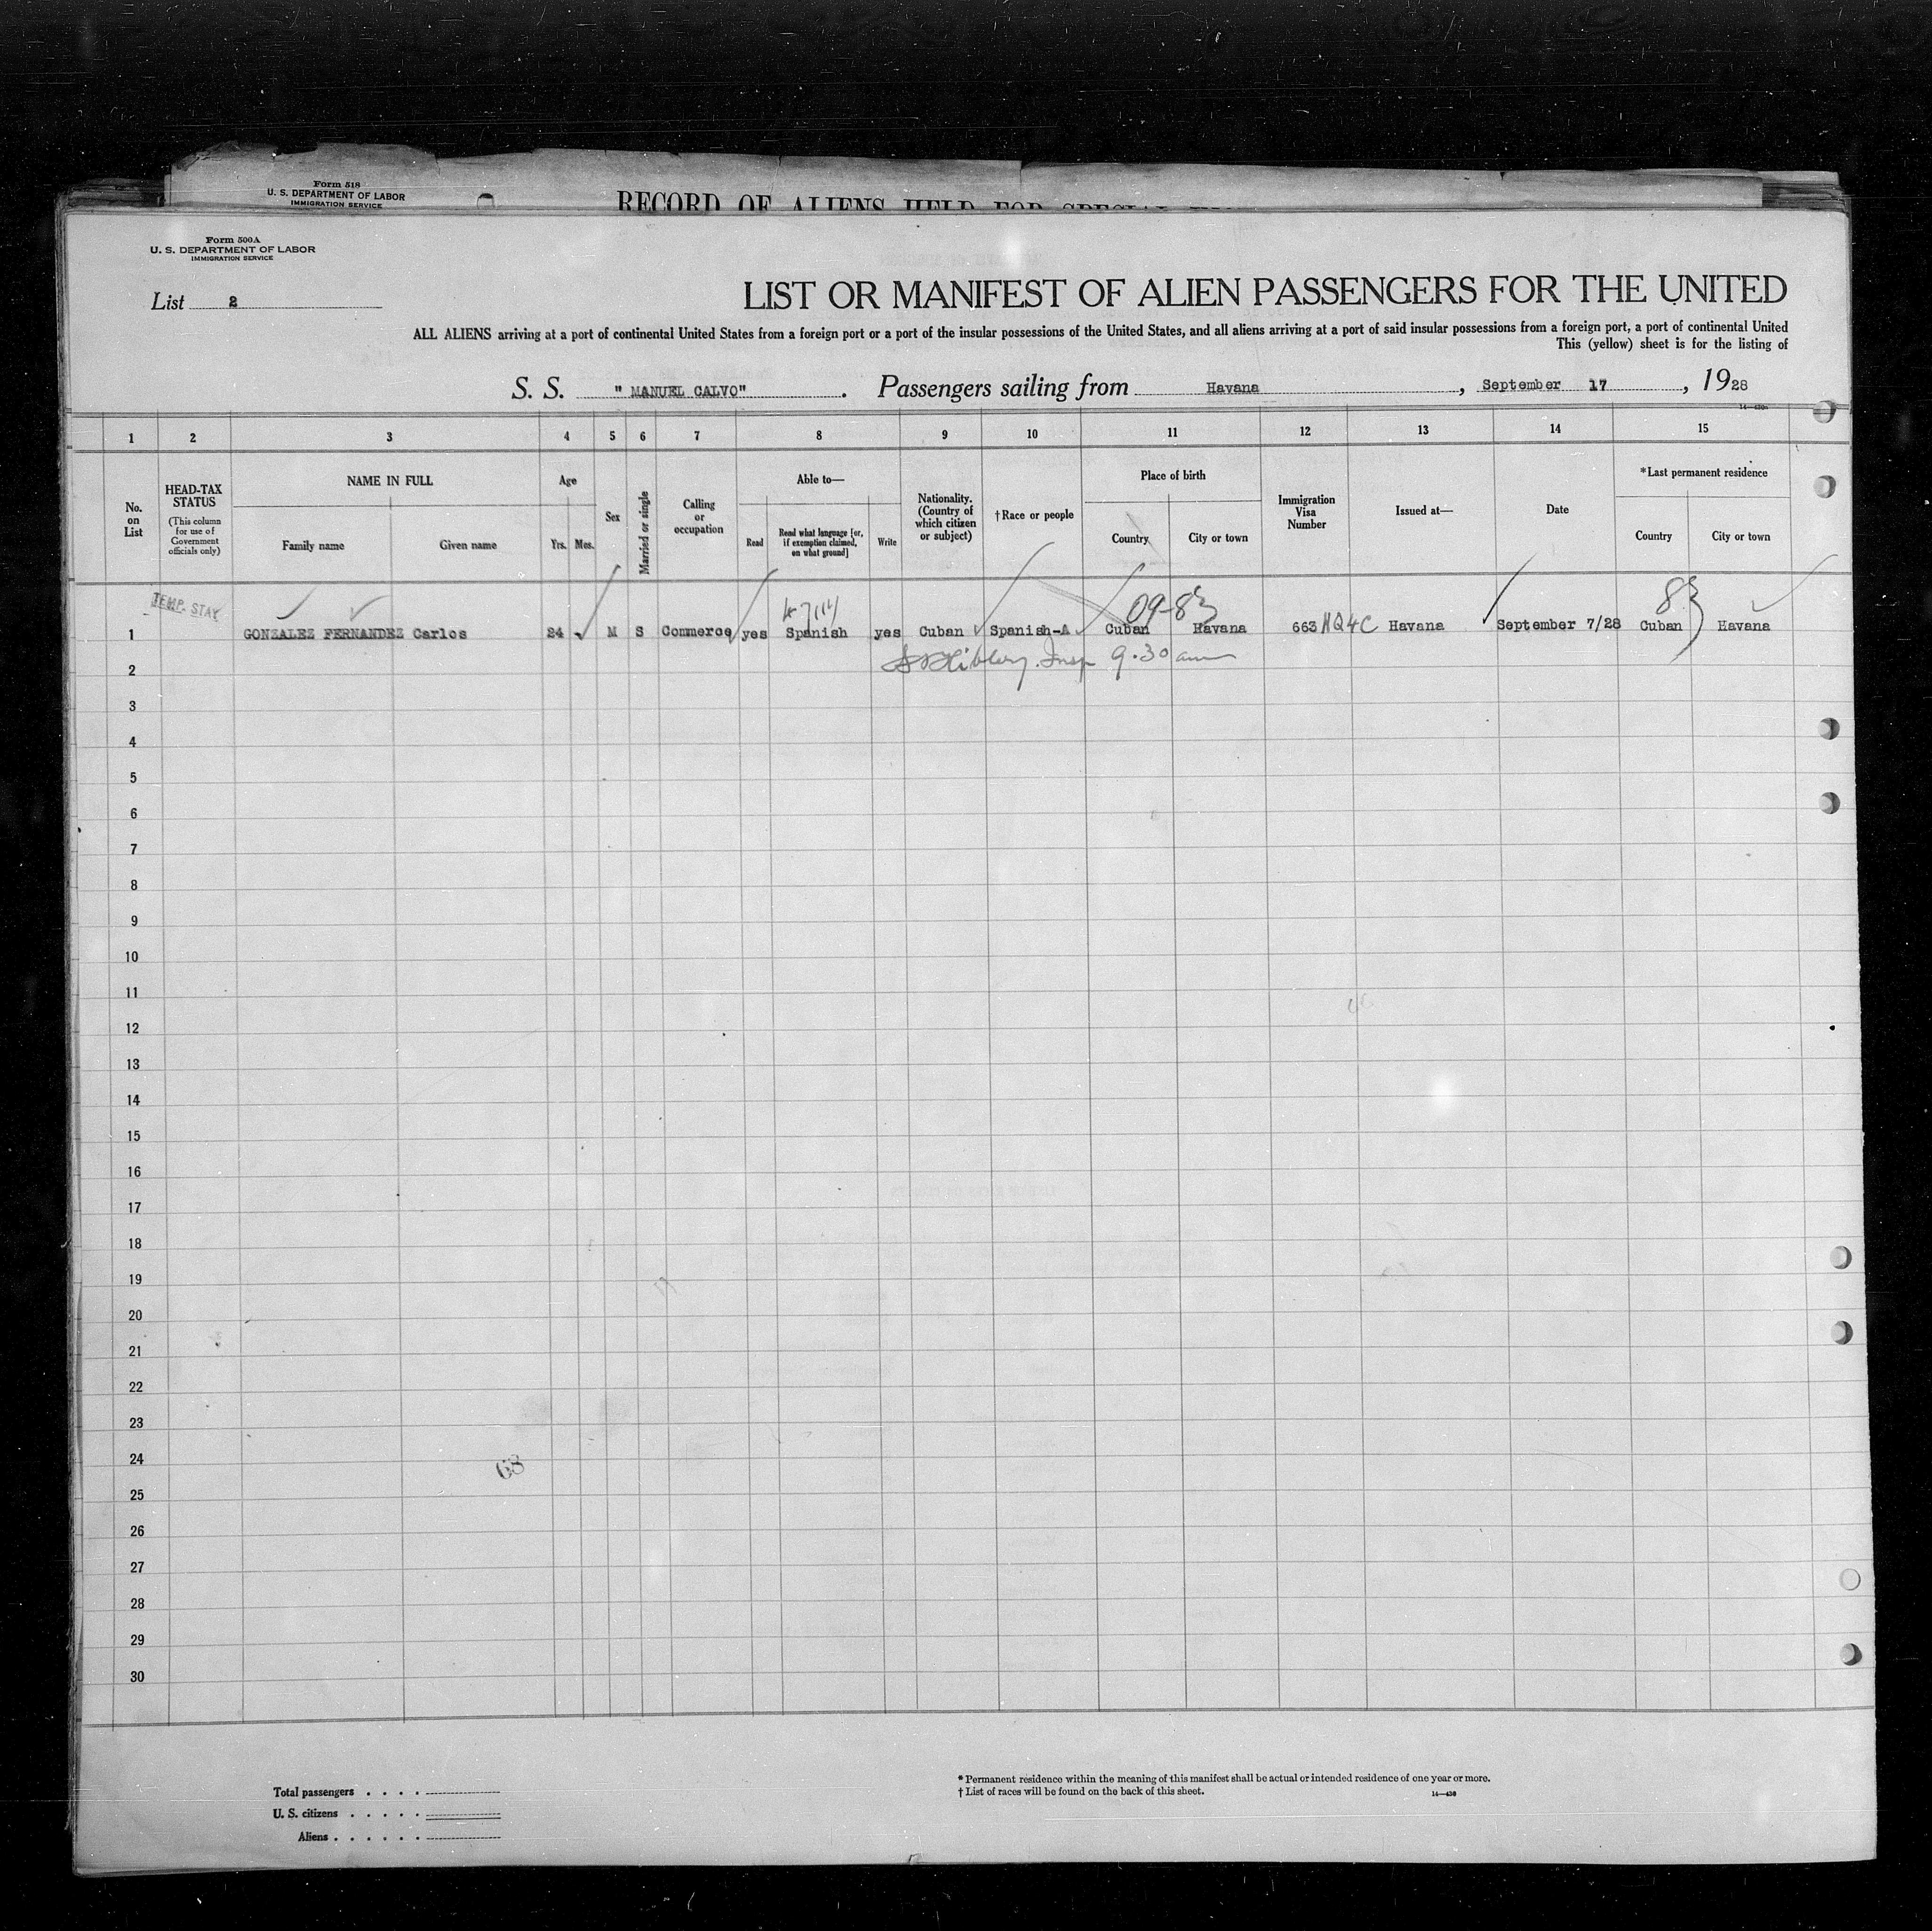 Form 518
U. S. DEPARTMENT OF LABOR
IMMIGRATION SERVICE
RECORD OF ALIENS HELD FOR SPECIAL
Form 500A
U. S. DEPARTMENT OF LABOR
IMMIGRATION SERVICE
List 2
LIST OR MANIFEST OF ALIEN PASSENGERS FOR THE UNITED
ALL ALIENS arriving at a port of continental United States from a foreign port or a port of the insular possessions of the United States, and all aliens arriving at a port of said insular possessions from a foreign port, a port of continental United
This (yellow) sheet is for the listing of
S. S. " MANUEL CALVO". Passengers sailing from Havana, September 17, 1928
14—430
1 2 3 4 5 6 7 8 9 10 11 12 13 14 15
No. on List
HEAD-TAX STATUS
(This column for use of Government officials only)
NAME IN FULL
Family name
Given name
Age
Yrs. Mos.
Sex
Married or single
Calling or occupation
Able to—
Read
Read what language [or, if exemption claimed, on what ground]
Write
Nationality. (Country of which citizen or subject)
†Race or people
Place of birth
Country
City or town
Immigration Visa Number
Issued at—
Date
*Last permanent residence
Country
City or town
TEMP. STAY
09-83
83
1 GONZALEZ FERNANDEZ Carlos 24 M S Commerce yes Spanish yes Cuban Spanish-A Cuban Havana 663 NQ4C Havana September 7/28 Cuban Havana
Insp 9.30 am
2
3
4
5
6
7
8
9
10
11
12
13
14
15
16
17
18
19
20
21
22
23
24
68
25
26
27
28
29
30
Total passengers . . . .
U. S. citizens . . . . .
Aliens . . . . . .
* Permanent residence within the meaning of this manifest shall be actual or intended residence of one year or more.
† List of races will be found on the back of this sheet.
14—430